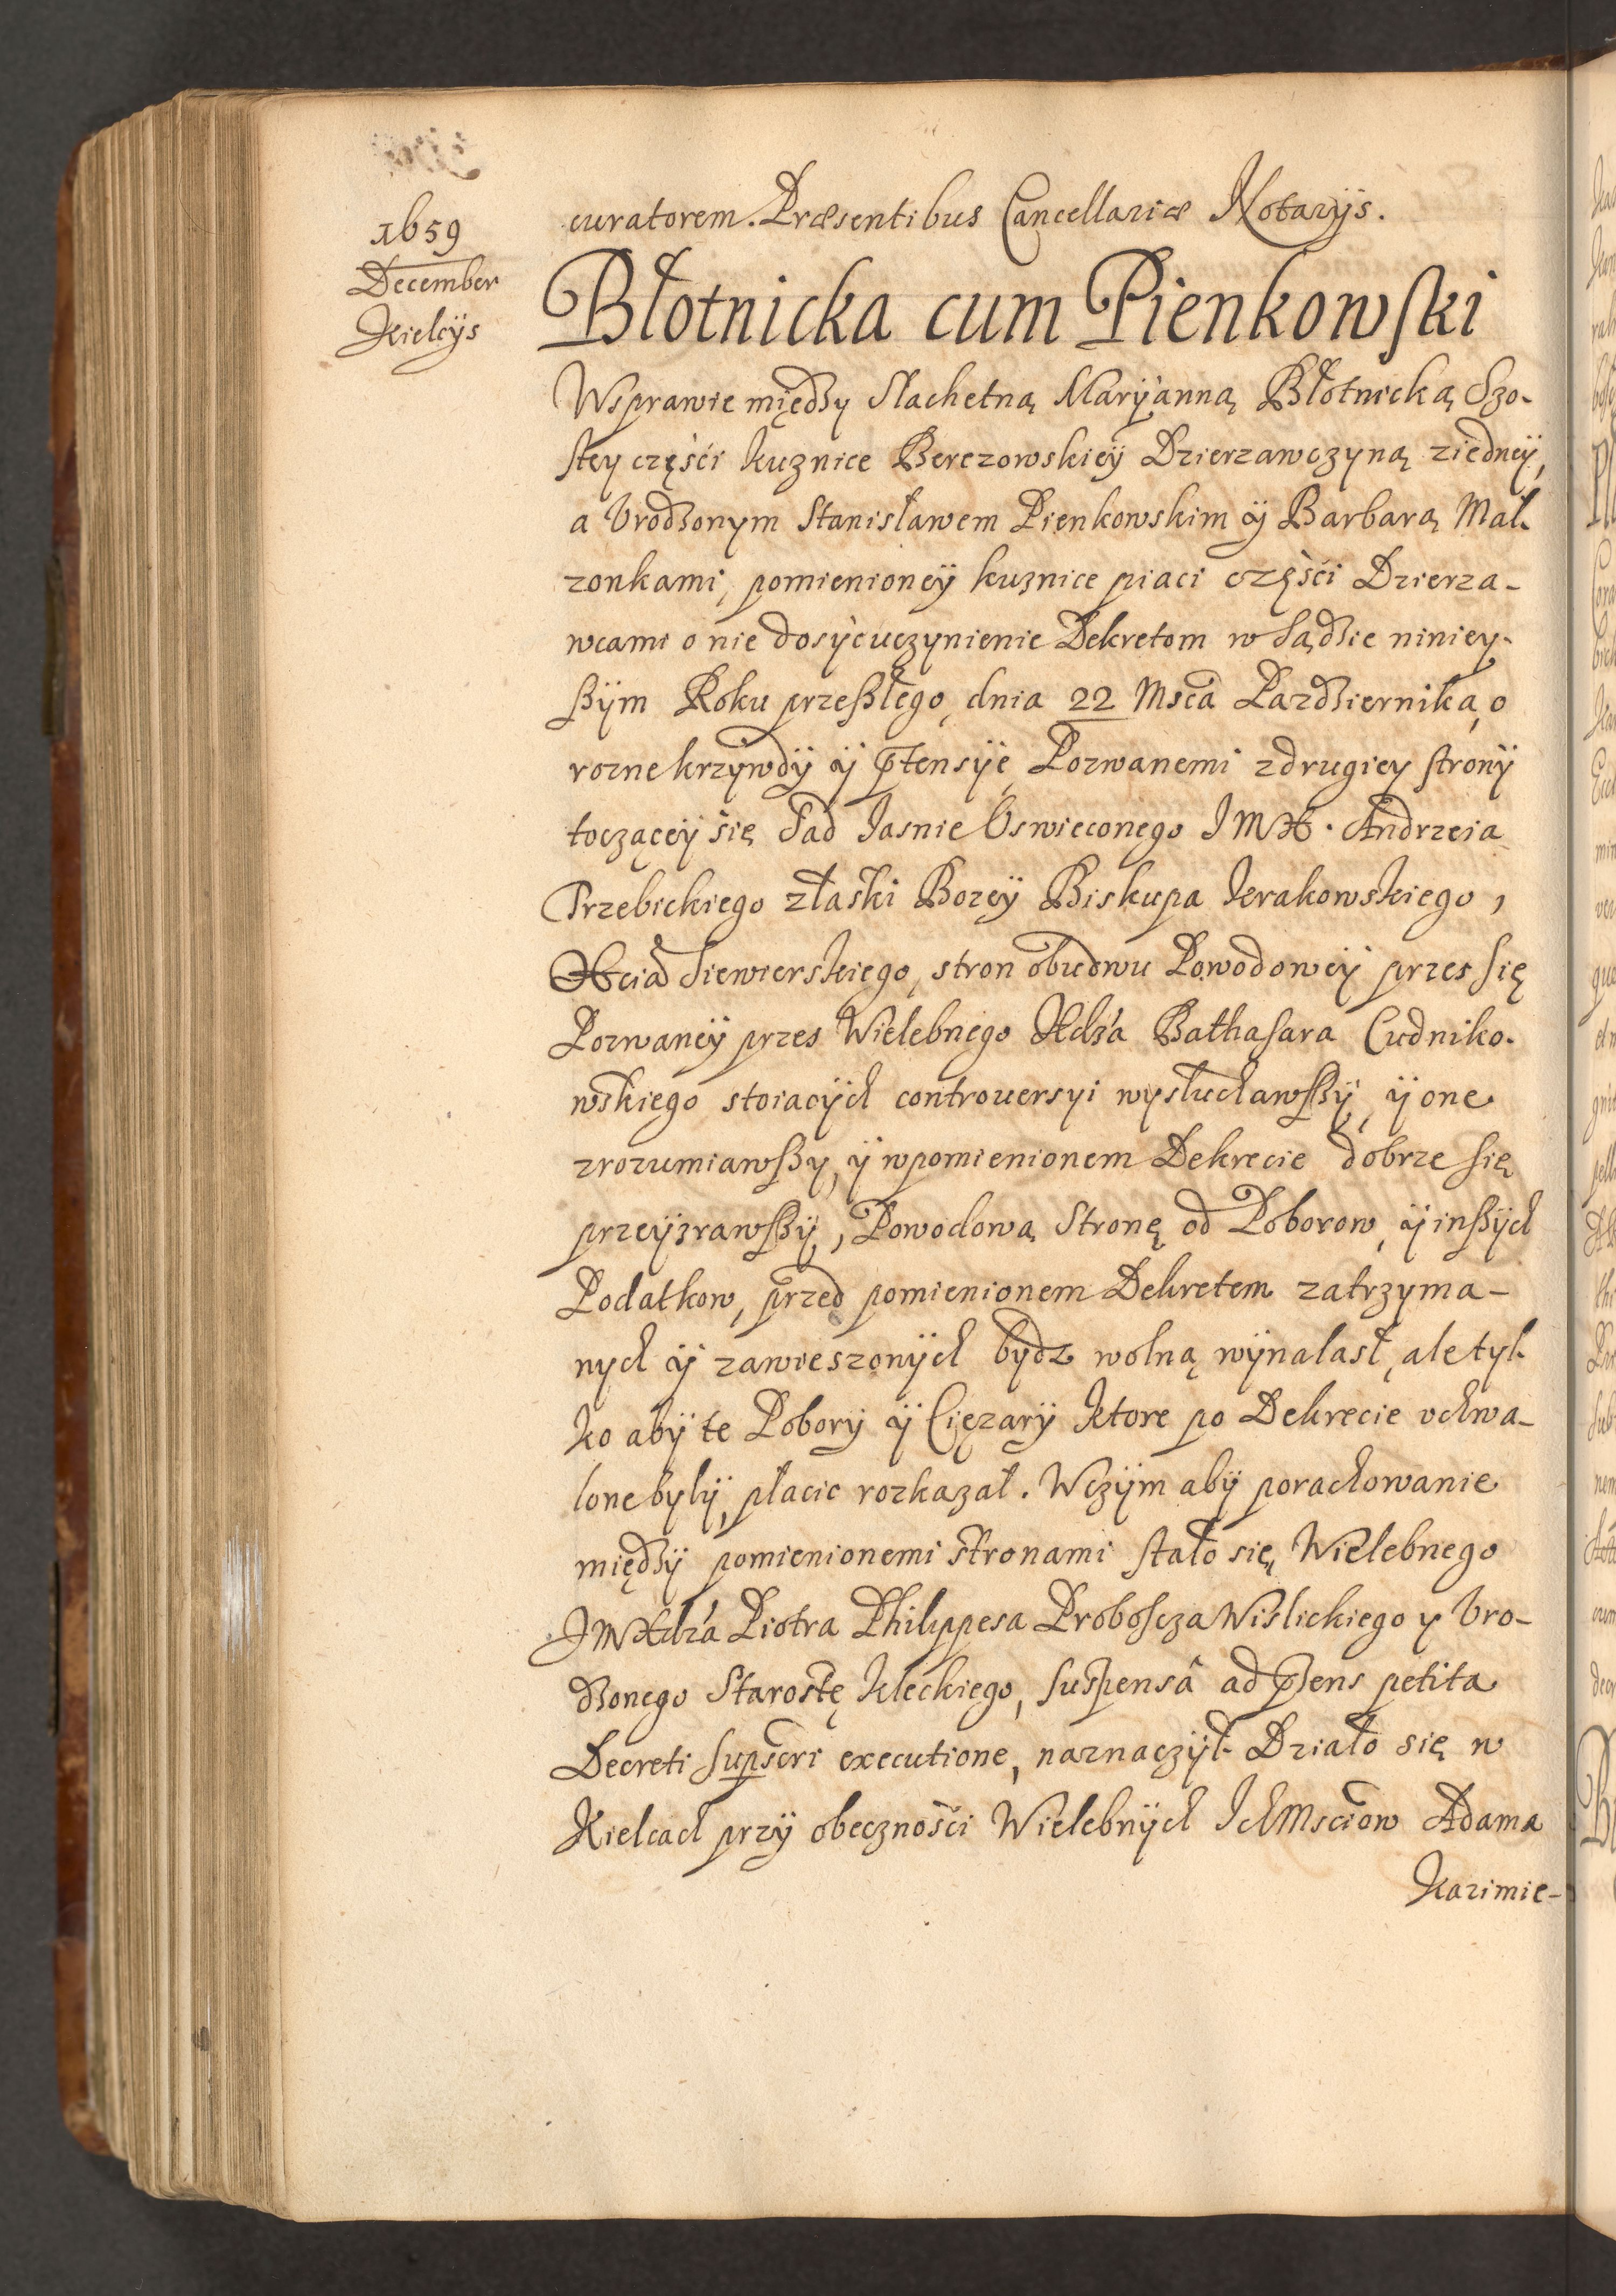 1659
December
Kielcÿs
curatorem. Præsentibus Cancellariæ Notarÿs.
Błotnicka cum Pienkowski
Wsprawie między Slachetną Marÿanną Błotnicką Szo-
stey częśći kuznice Berezowskieÿ Dzierzawczyną ziedneÿ,
a Vrodzonym Stanisławem Pienkowskim ÿ Barbarą Mał-
zonkami, pomienioneÿ kuznice piaci częśći Dzierza-
wcami o nie dosÿc uczynienie Dekretom w Sądzie niniey-
szÿm Roku przeszłego dnia 22 Msca Pazdziernika, o
rozne krzywdÿ ÿ ptensÿe, Pozwanemi zdrugiey stronÿ
tocząceÿ się Sad Iasnie Oswieconego I M X. Andrzeia
Trzebickiego złaski Bozeÿ Biskupa krakowskiego,
Xcia Siewierskiego, stron obudwu Powodoweÿ przes się
Pozwaneÿ przes Wielebnego Xdza Balthasara Cudniko-
wskiego stoiacÿch controuersyi wysłuchawszÿ, ÿ one
zrozumiawszy, ÿ wpomienionem Dekrecie dobrze się
przeÿzrawszÿ, Powodową Stronę od Poborow, ÿ inszÿch
Podatkow, przed pomienionem Dekretem zatrzyma-
nych ÿ zawieszonÿch bydz wolną wÿnalasł, ale tyl-
ko abÿ te Poborÿ ÿ Cięzarÿ ktore po Dekrecie vchwa-
lone bylÿ, płacic rozkazał. Wczÿm abÿ porachowanie
międzÿ pomienionemi stronami stało się, Wielebnego
I M Xdza Piotra Philippesa Proboscza Wislickiego y Vro-
dzonego Starostę kleckiego, suspensâ ad psens petita
Decreti supscri executione, naznaczÿł. Działo się w
Kielcach przÿ obecznośći Wielebnÿch Ich Msciow Adama
Kazimie-